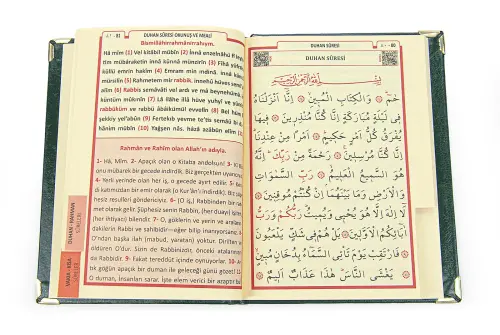 ٨١ - 81 DUHAN SÛRESİ OKUNUŞ VE MEALİ
Bismillâhirrahmânirrahıym.
Hâ mîm (1) Vel kitâbil mübîni (2) İnnâ enzelnâhü fî
tim mübâraketin innâ künnâ münzirîn (3) Fîhâ yüfra
küllü emrin hakîm (4) Emram min ındinâ. innâ künnâ
mürsilîn (5) Rahmetem mir rabbik. innehû hüves semî
alîm (6) Rabbis semâvâti vel ard ve mâ beynehümâ.
küntüm mûkınîn (7) Lâ ilâhe illâ hüve yuhyî ve yümî
rabbüküm ve rabbü âbâikümül evvelîn (8) Bel hüm
şekkiy yel'abûn (9) Fertekıb yevme te'tis semâü bi dü
hânim mübîn (10) Yağşen nâs. hâzâ azâbün elîm (11)
Rahmân ve Rahîm olan Allah'ın adıyla.
1- Hâ, Mîm. 2- Apaçık olan o Kitaba andolsun! 3- Biz
onu mübarek bir gecede indirdik. Biz gerçekten uyarıcıyız
4- Yerli yerinde olan her iş, o gecede ayırt edilir. 5-
di katımızdan bir emir olarak (o Kur'ân'ı indirdik). Biz
hesiz resulleri göndericiyiz. 6- (O iş,) Rabbinden bir
met olarak gelir. Şüphesiz senin Rabbin, (her duayı) işiten
(her ihtiyacı) bilendir. 7- O, göklerin ve yerin ve araların
dakilerin Rabbi ve sahibidir—eğer bilip inanıyorsanız
O'ndan başka ilah (mabud, yaratan) yoktur. Diriltir,
öldüren O'dur. Sizin de Rabbinizdir, önceki atalarınızın
da Rabbidir. 9- Fakat tereddüt içinde oynuyorlar. 10-
bk göğün apaçık bir duman ile geleceği günü gözet!
O duman, insanları sarar. İşte elemli verici bir azaptır b
DUHAN / RAHMAN
VAKIA / HADİD
DUHAN SÛRESİ ٨٠ - 80
DUHAN SÛRESİ
بِسْمِ اللّٰهِ الرَّحْمٰنِ الرَّحِيمِ
حٰمٓ ۞ وَالْكِتَابِ الْمُبِينِ ۞ اِنَّٓا اَنْزَلْنَاهُ
فِي لَيْلَةٍ مُبَارَكَةٍ اِنَّا كُنَّا مُنْذِرِينَ ۞ فِيهَا
يُفْرَقُ كُلُّ اَمْرٍ حَكِيمٍ ۞ اَمْرًا مِنْ عِنْدِنَا
اِنَّا كُنَّا مُرْسِلِينَ ۞ رَحْمَةً مِنْ رَبِّكَ اِنَّهُ
هُوَ السَّمِيعُ الْعَلِيمُ ۞ رَبِّ السَّمٰوَاتِ
وَالْاَرْضِ وَمَا بَيْنَهُمَا اِنْ كُنْتُمْ مُوقِنِينَ ۞
لَٓا اِلٰهَ اِلَّا هُوَ يُحْيِي وَيُمِيتُ رَبُّكُمْ وَرَبُّ
اٰبَٓائِكُمُ الْاَوَّلِينَ ۞ بَلْ هُمْ فِي شَكٍّ يَلْعَبُونَ ۞
فَارْتَقِبْ يَوْمَ تَأْتِي السَّمَٓاءُ بِدُخَانٍ مُبِينٍ ۞
يَغْشَى النَّاسَ هٰذَا عَذَابٌ اَلِيمٌ